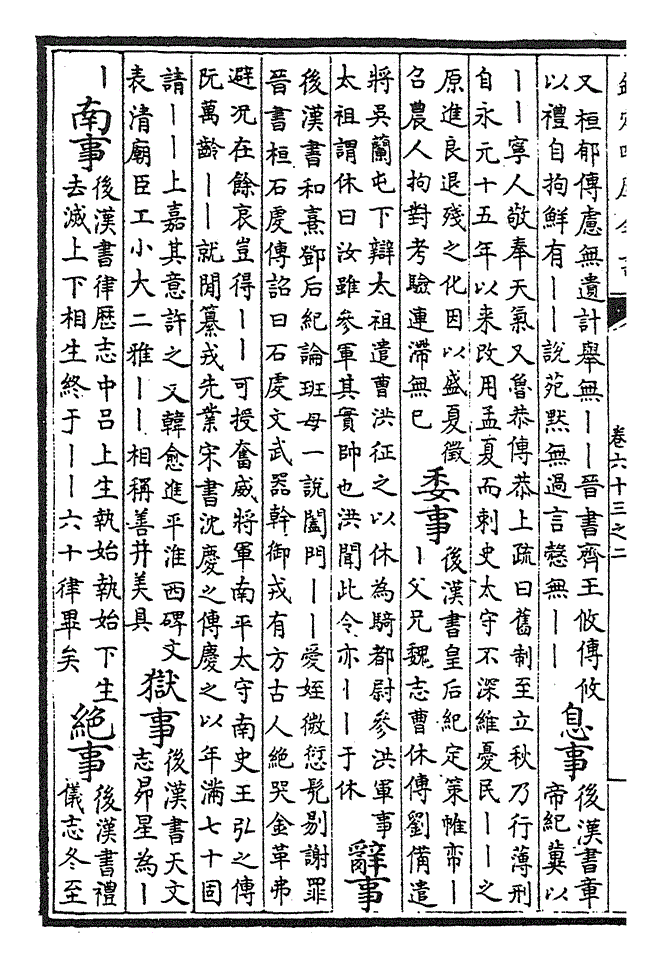 卷六十三之二
又桓郁傳慮無遺計舉無丨丨晉書齊王攸傳攸
以禮自拘鮮有丨丨說苑黙無過言慤無丨丨
息事
後漢書章
帝紀冀以
丨丨寧人敬奉天氣又魯恭傳恭上疏曰舊制至立秋乃行薄刑
自永元十五年以来改用孟夏而刺史太守不深維憂民丨丨之
原進良退殘之化因以盛夏徵
召農人拘對考驗連滯無已
委事
後漢書皇后紀定策帷帟丨
丨父兄魏志曹休傳劉備遣
將吳蘭屯下辯太祖遣曹洪征之以休為騎都尉參洪軍事
太祖謂休曰汝雖參軍其實帥也洪聞此令亦丨丨于休
辭事
後漢書和熹鄧后紀論班母一說闔門丨丨愛姪微愆髠剔謝罪
晉書桓石虔傳詔曰石虔文武器幹御戎有方古人絶哭金革弗
避况在餘哀豈得丨丨可授奮威將軍南平太守南史王弘之傳
阮萬齡丨丨就閒纂戎先業宋書沈慶之傳慶之以年滿七十固
請丨丨上嘉其意許之又韓愈進平淮西碑文
表清廟臣工小大二雅丨丨相稱善并美具
獄事
後漢書天文
志昴星為丨
丨
南事
後漢書律歴志中呂上生執始執始下生
去滅上下相生終于丨丨六十律畢矣
絶事
後漢書禮
儀志冬至